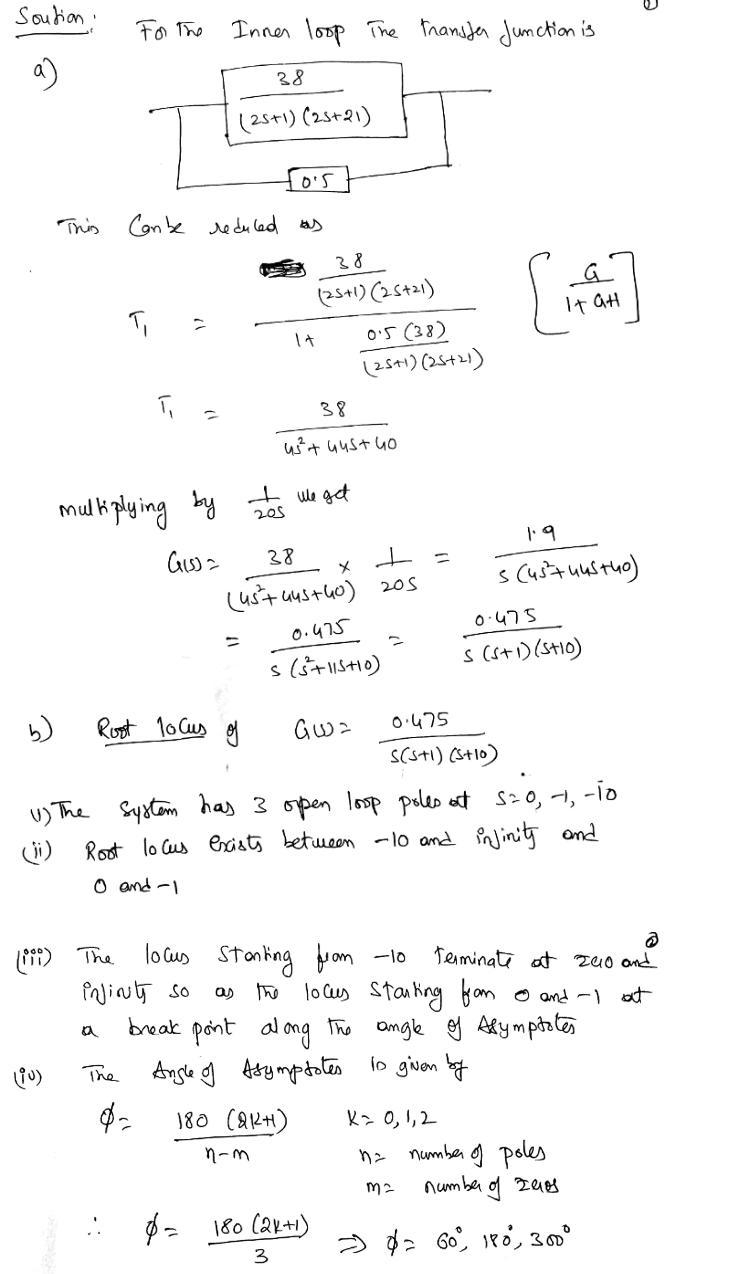 Soution: For The Inner loop The transfer function is
a)
38
(2s+1) (2s+21)
0.5
This Can be reduced as
38
(2s+1) (2s+21)
T₁ =
1+ 0.5 (38)
(2s+1) (2s+21)
[G
1+GH]
T₁ = 38
4s²+44s+40
multiplying by 1/20s we get
G(s) = 38/(4s²+44s+40) × 1/20s = 1.9/s(4s²+44s+40)
= 0.475/s(s²+11s+10) = 0.475/s(s+1)(s+10)
b) Root locus of G(s) = 0.475/s(s+1)(s+10)
(i) The system has 3 open loop poles at s=0, -1, -10
(ii) Root locus exists between -10 and infinity and
0 and -1
2
(iii) The locus starting from -10 terminate at zero and
infinity so as the locus starting from 0 and -1 at
a break point along the angle of Asymptotes
(iv) The Angle of Asymptotes is given by
ϕ = 180 (2k+1)/n-m k= 0, 1, 2
n= number of poles
m= number of zeros
∴ ϕ = 180 (2k+1)/3 ⇒ ϕ = 60°, 180°, 300°